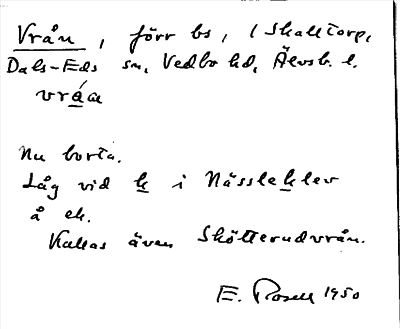 Vrån, förr bs, i Skalltorp,
Dals-Eds sn, Vedbo hd, Älvsb. l.
vrá̱a
Nu borta.
Låg vid k i Nässleklev
å ek.
Kallas även Skötterudvrån.
E. Rosell 1950